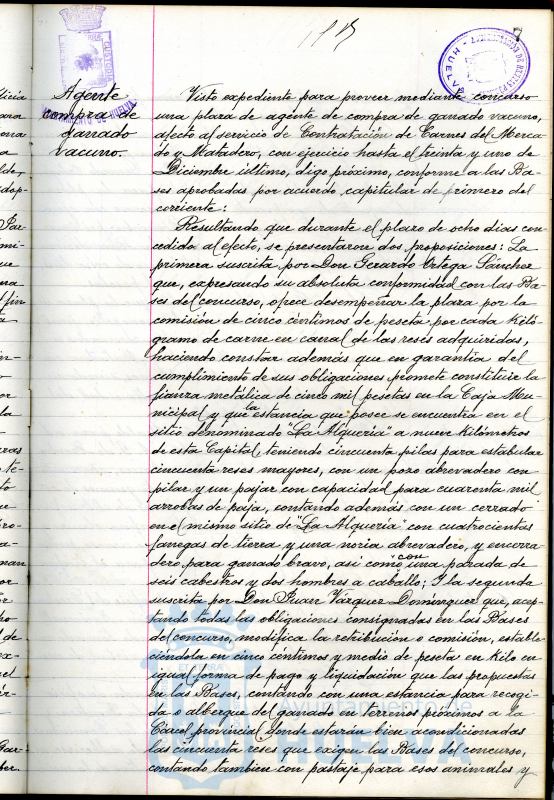 7
Agente
compra de
ganado
vacuno.
Visto expediente para proveer mediante concurso
una plaza de agente de compra de ganado vacuno,
afecto al servicio de Contratación de Carnes del Merca-
do y Matadero, con ejercicio hasta el treinta y uno de
Diciembre último, digo próximo, conforme a las Ba-
ses aprobadas por acuerdo capitular de primero del
corriente:
Resultando que durante el plazo de ocho días con-
cedido al efecto, se presentaron dos proposiciones: La
primera suscrita por Don Gerardo Ortega Sánchez
que, expresando su absoluta conformidad con las Ba-
ses del concurso, ofrece desempeñar la plaza por la
comisión de cinco céntimos de peseta por cada kiló-
gramo de carne en canal de las reses adquiridas,
haciendo constar además que en garantía del
cumplimiento de sus obligaciones promete constituir la
fianza metálica de cinco mil pesetas en la Caja Mu-
nicipal y que la estancia que posee se encuentra en el
sitio denominado "La Alquería" a nueve kilómetros
de esta Capital, teniendo cincuenta pilas para estabular
cincuenta reses mayores, con un pozo abrevadero con
pilar y un pajar con capacidad para cuarenta mil
arrobas de paja, contando además con un cerrado
en el mismo sitio de "La Alquería" con cuatrocientas
fanegas de tierra y una noria abrevadero, y encerra-
dero para ganado bravo, así como con una parada de
seis cabestros y dos hombres a caballo; Y la segunda
suscrita por Don Juan Vázquez Domínguez que, acep-
tando todas las obligaciones consignadas en las Bases
del concurso, modifica la retribución o comisión, estable-
ciéndola en cinco céntimos y medio de peseta en kilo en
igual forma de pago y liquidación que las propuestas
en las Bases, contando con una estancia para recogi-
da o albergue del ganado en terrenos próximos a la
Cárcel provincial, donde estarán bien acondicionadas
las cincuenta reses que exigen las Bases del concurso,
contando también con pastaje para esos animales y
Ayuntamiento de
HUELVA